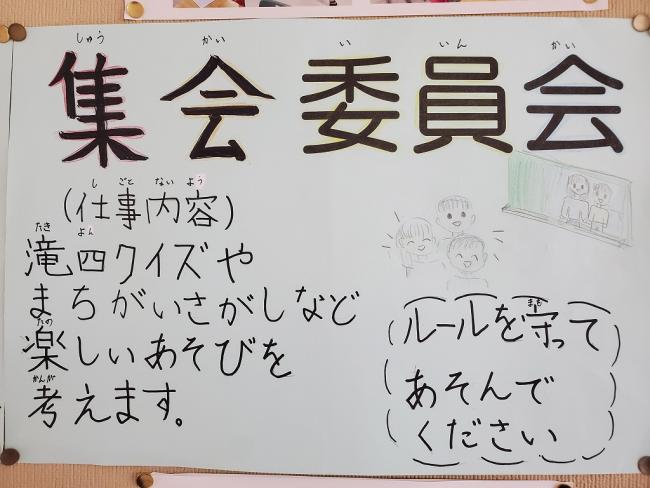 しゅう かい い いん かい
集会委員会
し ごと ない よう
(仕事内容)
たき よん
滝四クイズや
まちがいさがしなど
たの
楽しいあそびを
かんが
考えます。
まも
ルールを守って
あそんで
ください